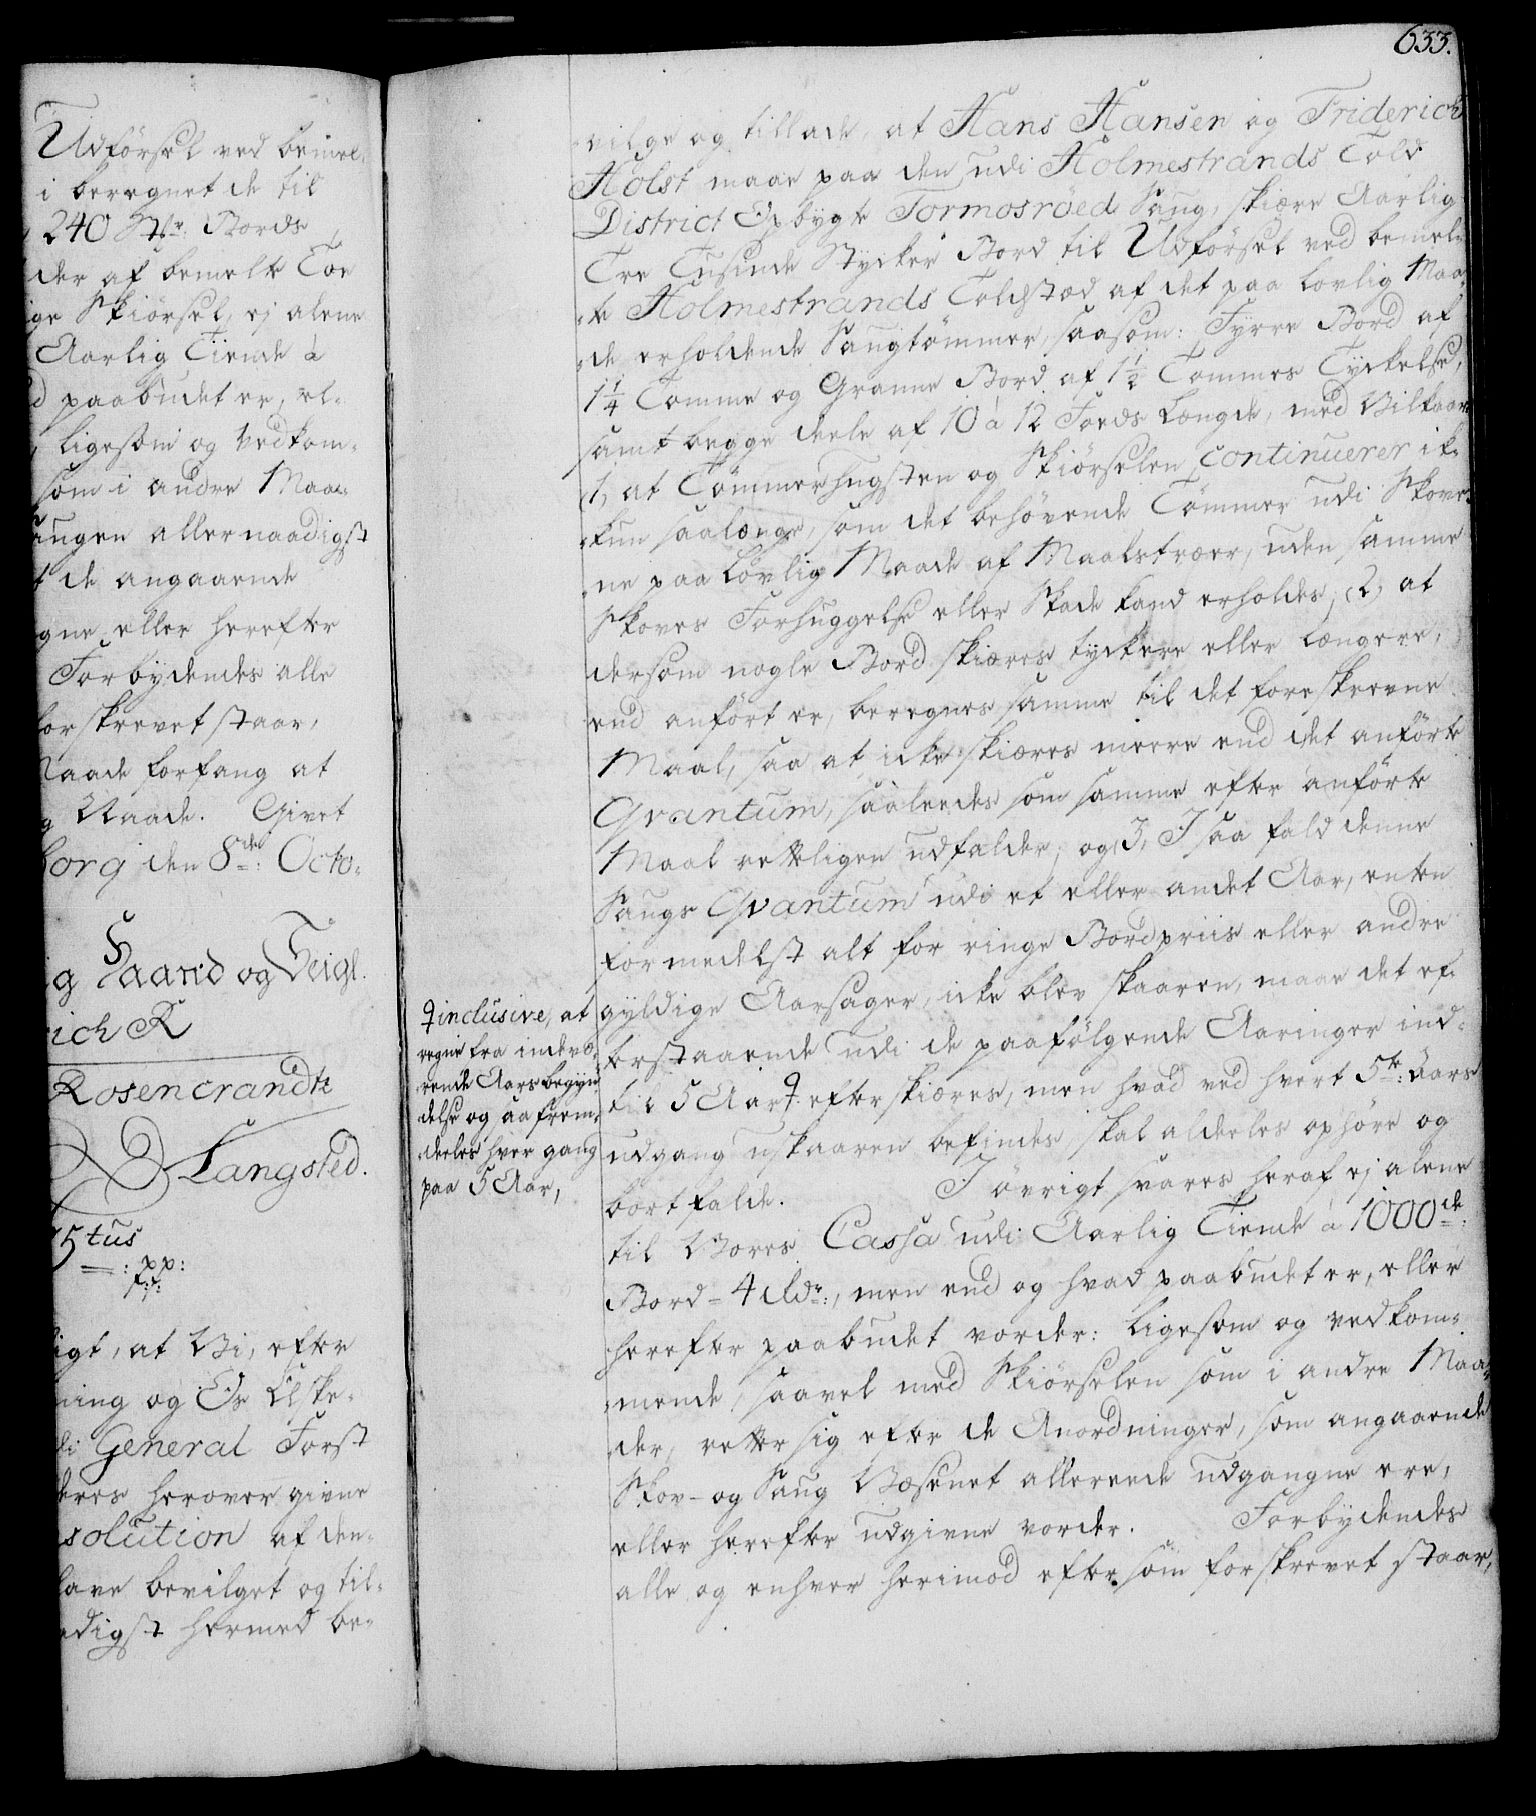 Udförsel ved bemel-
i beregnet de til
240 Stkr: Bords
der af bemelte Toe
ge Skiörsel, ej alene
Aarlig Tiende à
paabudet er, el-
ligesom og vedkom-
som i andre Maa-
augen allernaadigst
de angaaende
gne eller herefter
Forbydendes alle
forskrevet staar,
Naade forfang at
Naade. Givet
borg den 8de: Octo-
g Haand og Seigl.
ich R
Rosencrandtz
Langsted.
5tus
: pp:
f:f:
igt, at Vi, efter
ning og Os Elske-
di General Forst
deres herover givne
solution af den-
have bevilget og til-
adigst hermed be-
633.
vilge og tillade, at Hans Hansen og Friderich
Holst maae paa den udi Holmestrands Told
District Opbygte Tormosröed Saug, skiære Aarlig
Tre Tusinde Stycker Bord til Udförsel ved bemel-
te Holmestrands Toldstæd af det paa lovlig Maa-
de erholdende Saugtömmer, saasom: Fyrre Bord af
1 1/4 Tomme og Granne Bord af 1 1/2 Tommes Tyckelse,
samt begge deele af 10 à 12 Foeds Længde, med Vilkaar
1, at Tömmerhugsten og Skiörselen continuerer ik-
kun saalænge, som det behövende Tömmer udi Skove-
ne paa lovlig Maade af Maalstræer, uden samme
Skoves Forhuggelse eller Skade kand erholdes, (2, at
dersom nogle Bord skiæres tyckere eller længere,
end anfört er, beregnes samme til det foreskrevne
Maal, saa at icke skiæres meere end det anförte
Qvantum, saaleedes som samme efter anförte
Maal retteligen udfalder; og 3, I saa fald denne
Saugs Qvantum udi et eller andet Aar, enten
formedelst alt for ringe Bordpriis eller andre
gyldige Aarsager, icke blev skaaren, maae det ef-
terstaaende udi de paafölgende Aaringer ind-
til 5 Aar ♀ efterskiæres, men hvad ved hvert 5te: Aars
udgang uskaaren befindes, skal aldeeles ophöre og
bortfalde. I övrigt svares heraf ej alene
til Vores Cassa udi Aarlig Tiende à 1000de:
Bord - 4 Rdr:, men end og hvad paabudet er, eller
herefter paabudet vorder: ligesom og vedkom-
mende, saavel med Skiörselen som i andre Maa-
der, retter sig efter de Anordninger, som angaaende
Skov- og Saug Væsenet allereede udgangne ere,
eller herefter udgivne vorder. Forbydendes
alle og enhver herimod eftersom forskrevet staar,
♀ inclusive, at
regne fra indevæ-
rende Aars begyn-
delse og saa frem-
deeles hver gang
paa 5 Aar,